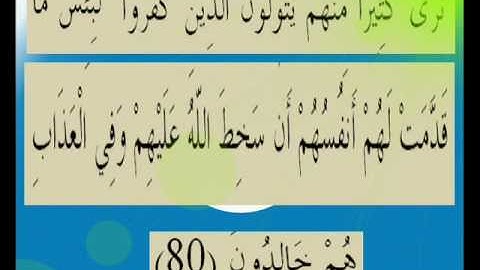 تَرَى كَثِيرًا مِّنْهُمْ يَتَوَلَّوْنَ الَّذِينَ كَفَرُوا لَبِئْسَ مَا
قَدَّمَتْ لَهُمْ أَنفُسُهُمْ أَن سَخِطَ اللَّهُ عَلَيْهِمْ وَفِي الْعَذَابِ
هُمْ خَالِدُونَ (80)